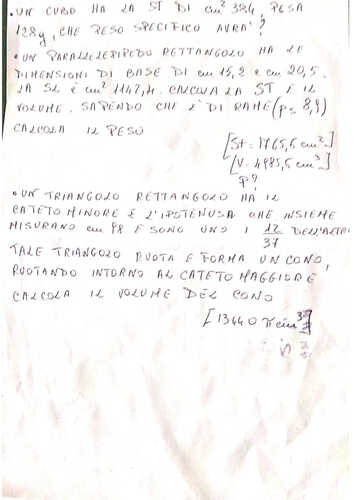 • UN CUBO HA LA ST DI cm² 384, PESA
128g, CHE PESO SPECIFICO AVRA'?
• UN PARALLELEPIPEDO RETTANGOLO HA LE
DIMENSIONI DI BASE DI cm 15,2 e cm 20,5.
LA SL È cm² 1142,4. CALCOLA LA ST E IL
VOLUME. SAPENDO CHE È DI RAME (ps 8,9)
CALCOLA IL PESO
[St = 1765,6 cm²]
[V = 4985,6 cm³]
P?
• UN TRIANGOLO RETTANGOLO HA IL
CATETO MINORE E L'IPOTENUSA CHE INSIEME
MISURANO cm 98 E SONO UNO I 12/37 DELL'ALTRO
TALE TRIANGOLO RUOTA E FORMA UN CONO,
RUOTANDO INTORNO AL CATETO MAGGIORE
CALCOLA IL VOLUME DEL CONO
[13440 π cm³]